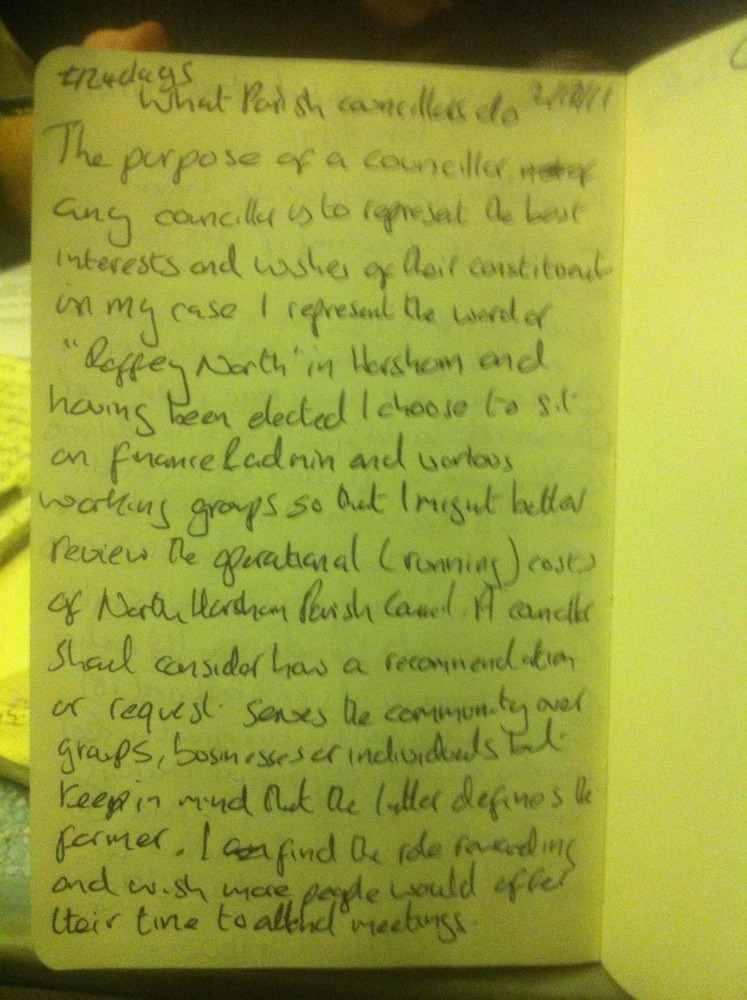 What Parish councillors do
The purpose of a councillor,
any councillor is to represent the best
interests and wishes of their constituents
in my case I represent the ward of
"Roffey North" in Horsham and
having been elected I choose to sit
on finance & admin and various
working groups so that I might better
review the operational (running) costs
of North Horsham Parish Council. A councillor
shall consider how a recommendation
or request serves the community over
groups, businesses or individuals but
keep in mind that the latter defines the
former. I find the role rewarding
and wish more people would offer
their time to attend meetings.